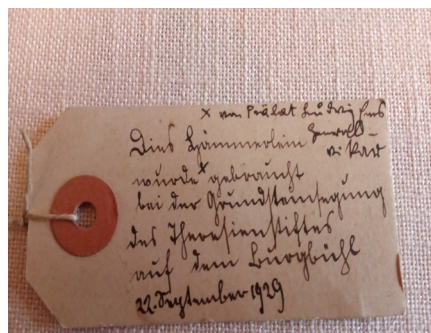 x von Prälat Ludwig Ems
General-
Dies Hämmerlein vikar
wurde x gebraucht
bei der Grundsteinsegung
des Theresienstiftes
auf dem Bürgbühl
22. September 1929